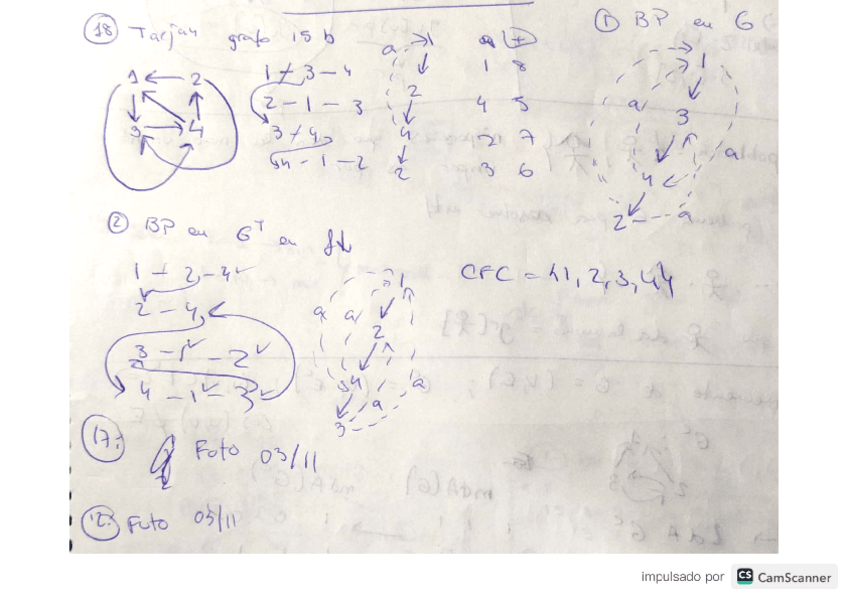 18 Tarjan grafo 15 b
1 2
3 4
1 - 3 - 4
2 - 1 - 3
3 - 4
4 - 1 - 2
a 1
2
4
2
1 8
4 5
2 7
3 6
① BP en G
1
a
3
a
4
2 a
② BP en Gᵀ en f↓
1 - 2 - 4
2 - 4
3 - 1 - 2
4 - 1 - 3
1
a a
2
4 a
3 a
CFC = {1, 2, 3, 4}
17: Foto 03/11
12: Foto 03/11
impulsado por CS CamScanner